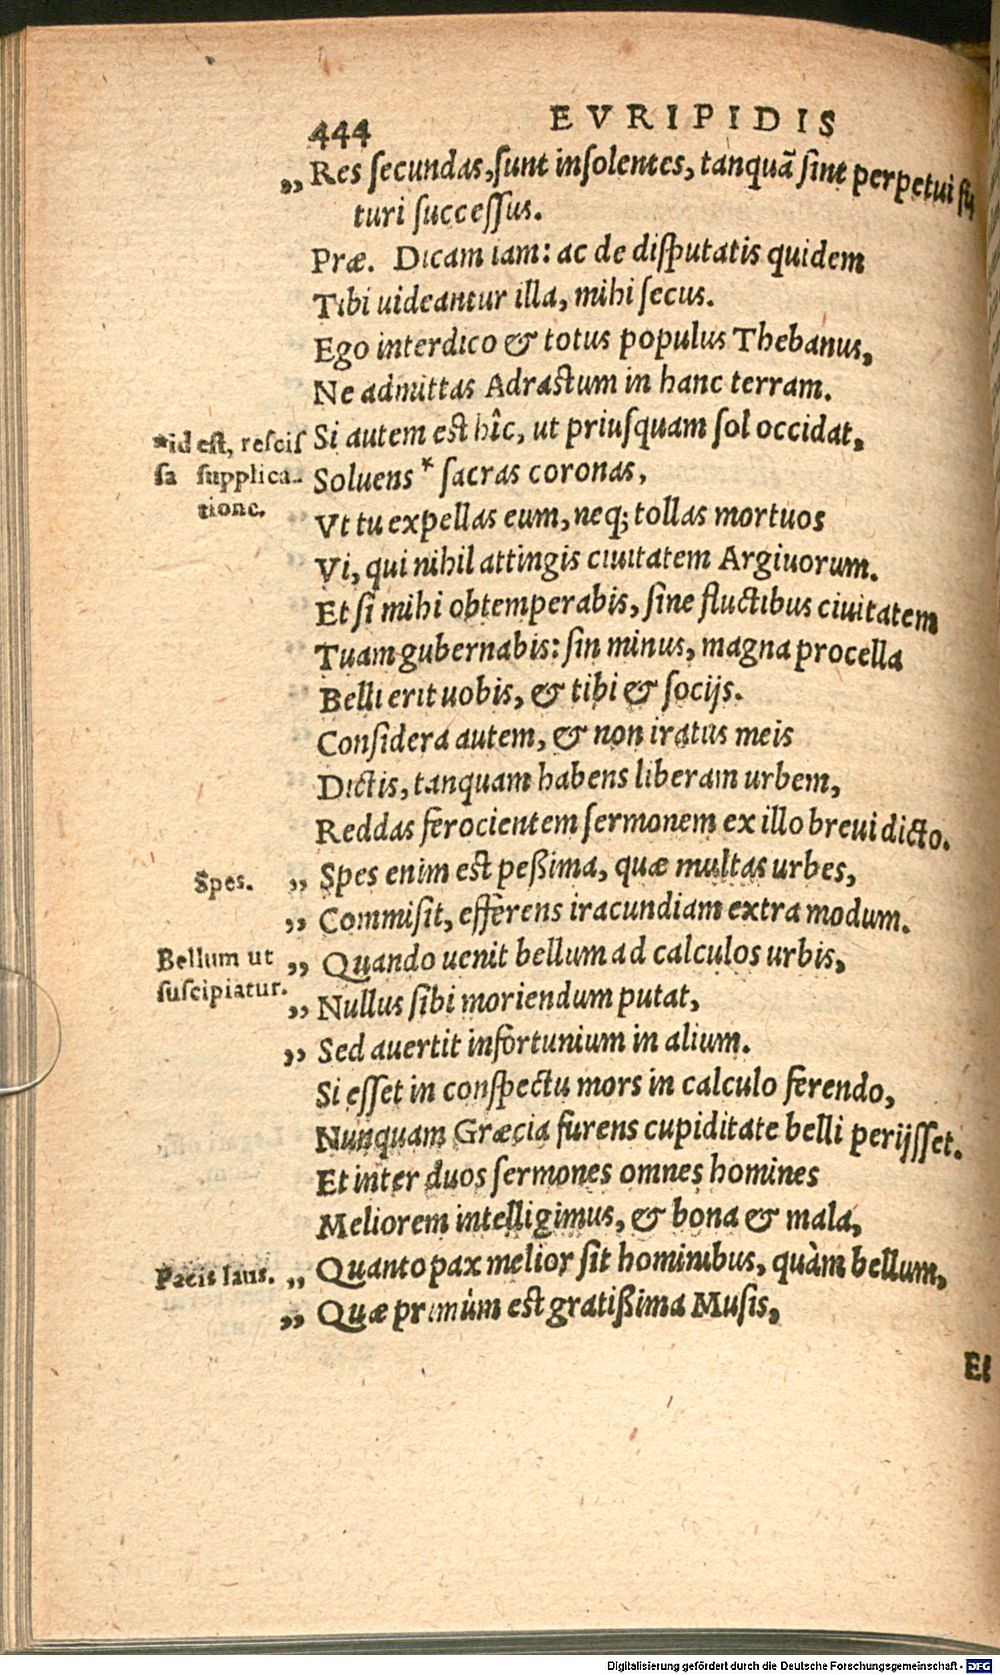 444 EVRIPIDIS
„ Res secundas, sunt insolentes, tanquã sint perpetui fu
turi successus.
Præ. Dicam iam: ac de disputatis quidem
Tibi uideantur illa, mihi secus.
Ego interdico & totus populus Thebanus,
Ne admittas Adrastum in hanc terram.
Si autem est hîc, ut priusquam sol occidat,
*id est, rescis
sa supplica-
tione.
Soluens * sacras coronas,
Vt tu expellas eum, neq; tollas mortuos
Vi, qui nihil attingis ciuitatem Argiuorum.
Et si mihi obtemperabis, sine fluctibus ciuitatem
Tuam gubernabis: sin minus, magna procella
Belli erit uobis, & tibi & socijs.
Considera autem, & non iratus meis
Dictis, tanquam habens liberam urbem,
Reddas ferocientem sermonem ex illo breui dicto.
Spes. „ Spes enim est peßima, quæ multas urbes,
„ Commisit, efferens iracundiam extra modum.
Bellum ut
suscipiatur.
„ Quando uenit bellum ad calculos urbis,
„ Nullus sibi moriendum putat,
„ Sed auertit infortunium in alium.
Si esset in conspectu mors in calculo ferendo,
Nunquam Græcia furens cupiditate belli perijsset.
Et inter duos sermones omnes homines
Meliorem intelligimus, & bona & mala,
Pacis laus. „ Quanto pax melior sit hominibus, quàm bellum,
„ Quæ primùm est gratißima Musis,
Et
Digitalisierung gefördert durch die Deutsche Forschungsgemeinschaft - DFG